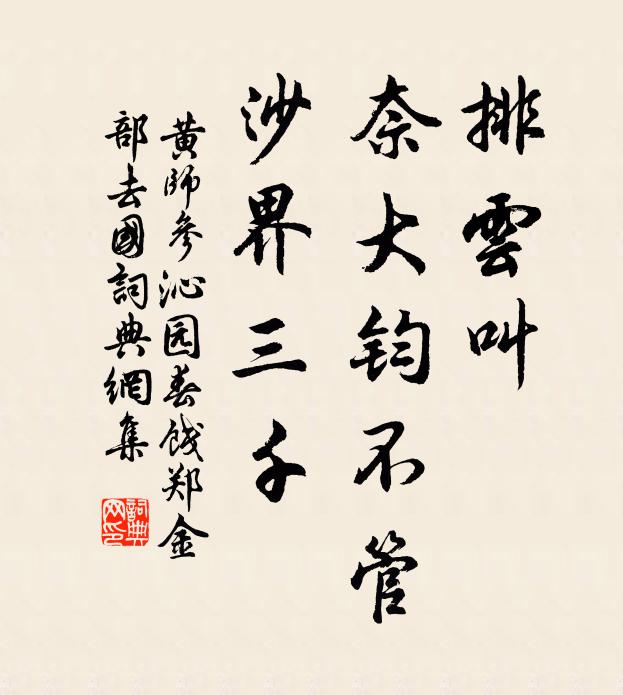 排雲叫
奈大鈞不管
沙界三千
黄師參沁园春餞郑金
部去國詞典網集
詞典
网印